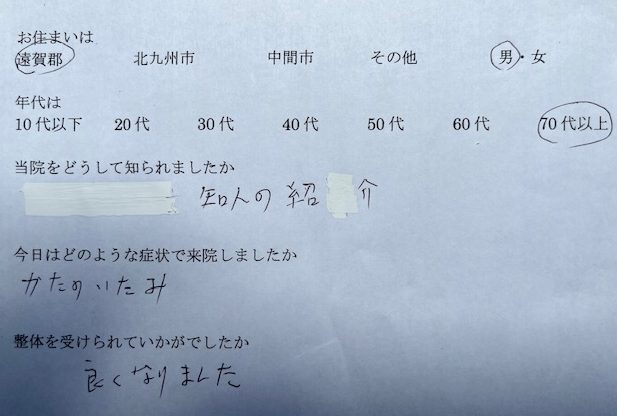 お住まいは
遠賀郡 北九州市 中間市 その他 男・女
年代は
10代以下 20代 30代 40代 50代 60代 70代以上
当院をどうして知られましたか
知人の紹介
今日はどのような症状で来院しましたか
かたのいたみ
整体を受けられていかがでしたか
良くなりました